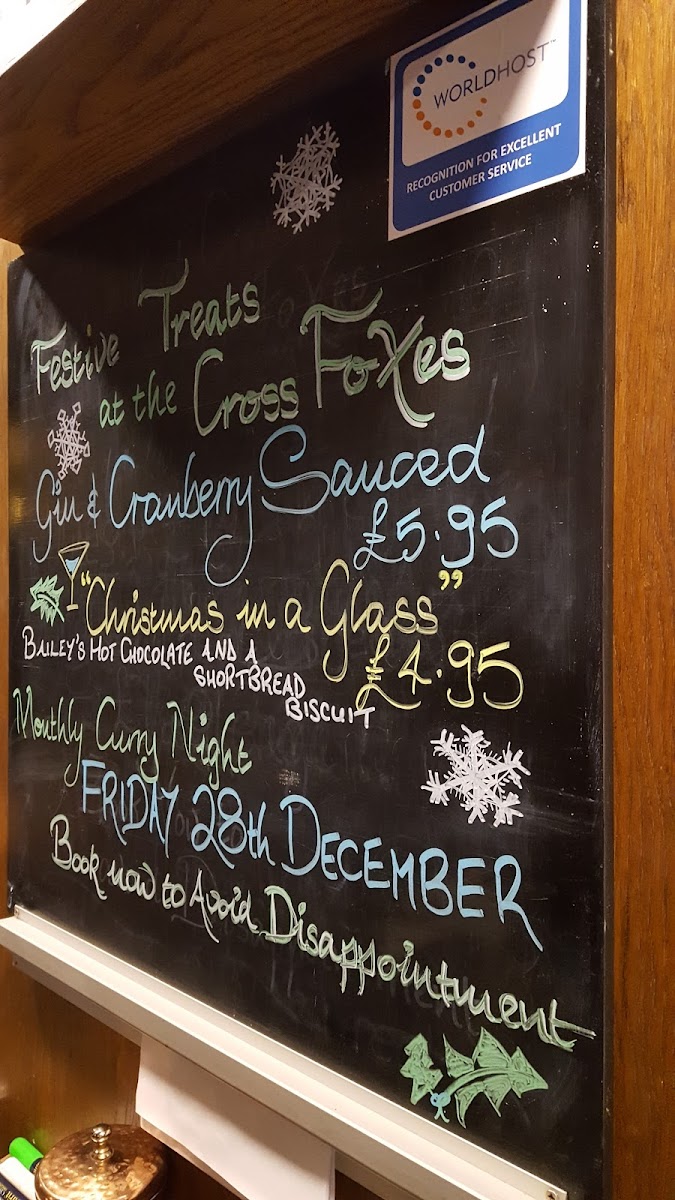 WORLDHOST™
RECOGNITION FOR EXCELLENT
CUSTOMER SERVICE
Festive Treats
at the Cross Foxes
Gin & Cranberry Sauced
£5.95
"Christmas in a Glass"
£4.95
BAILEY'S HOT CHOCOLATE AND A
SHORTBREAD
BISCUIT
Monthly Curry Night
FRIDAY 28th DECEMBER
Book now to Avoid Disappointment